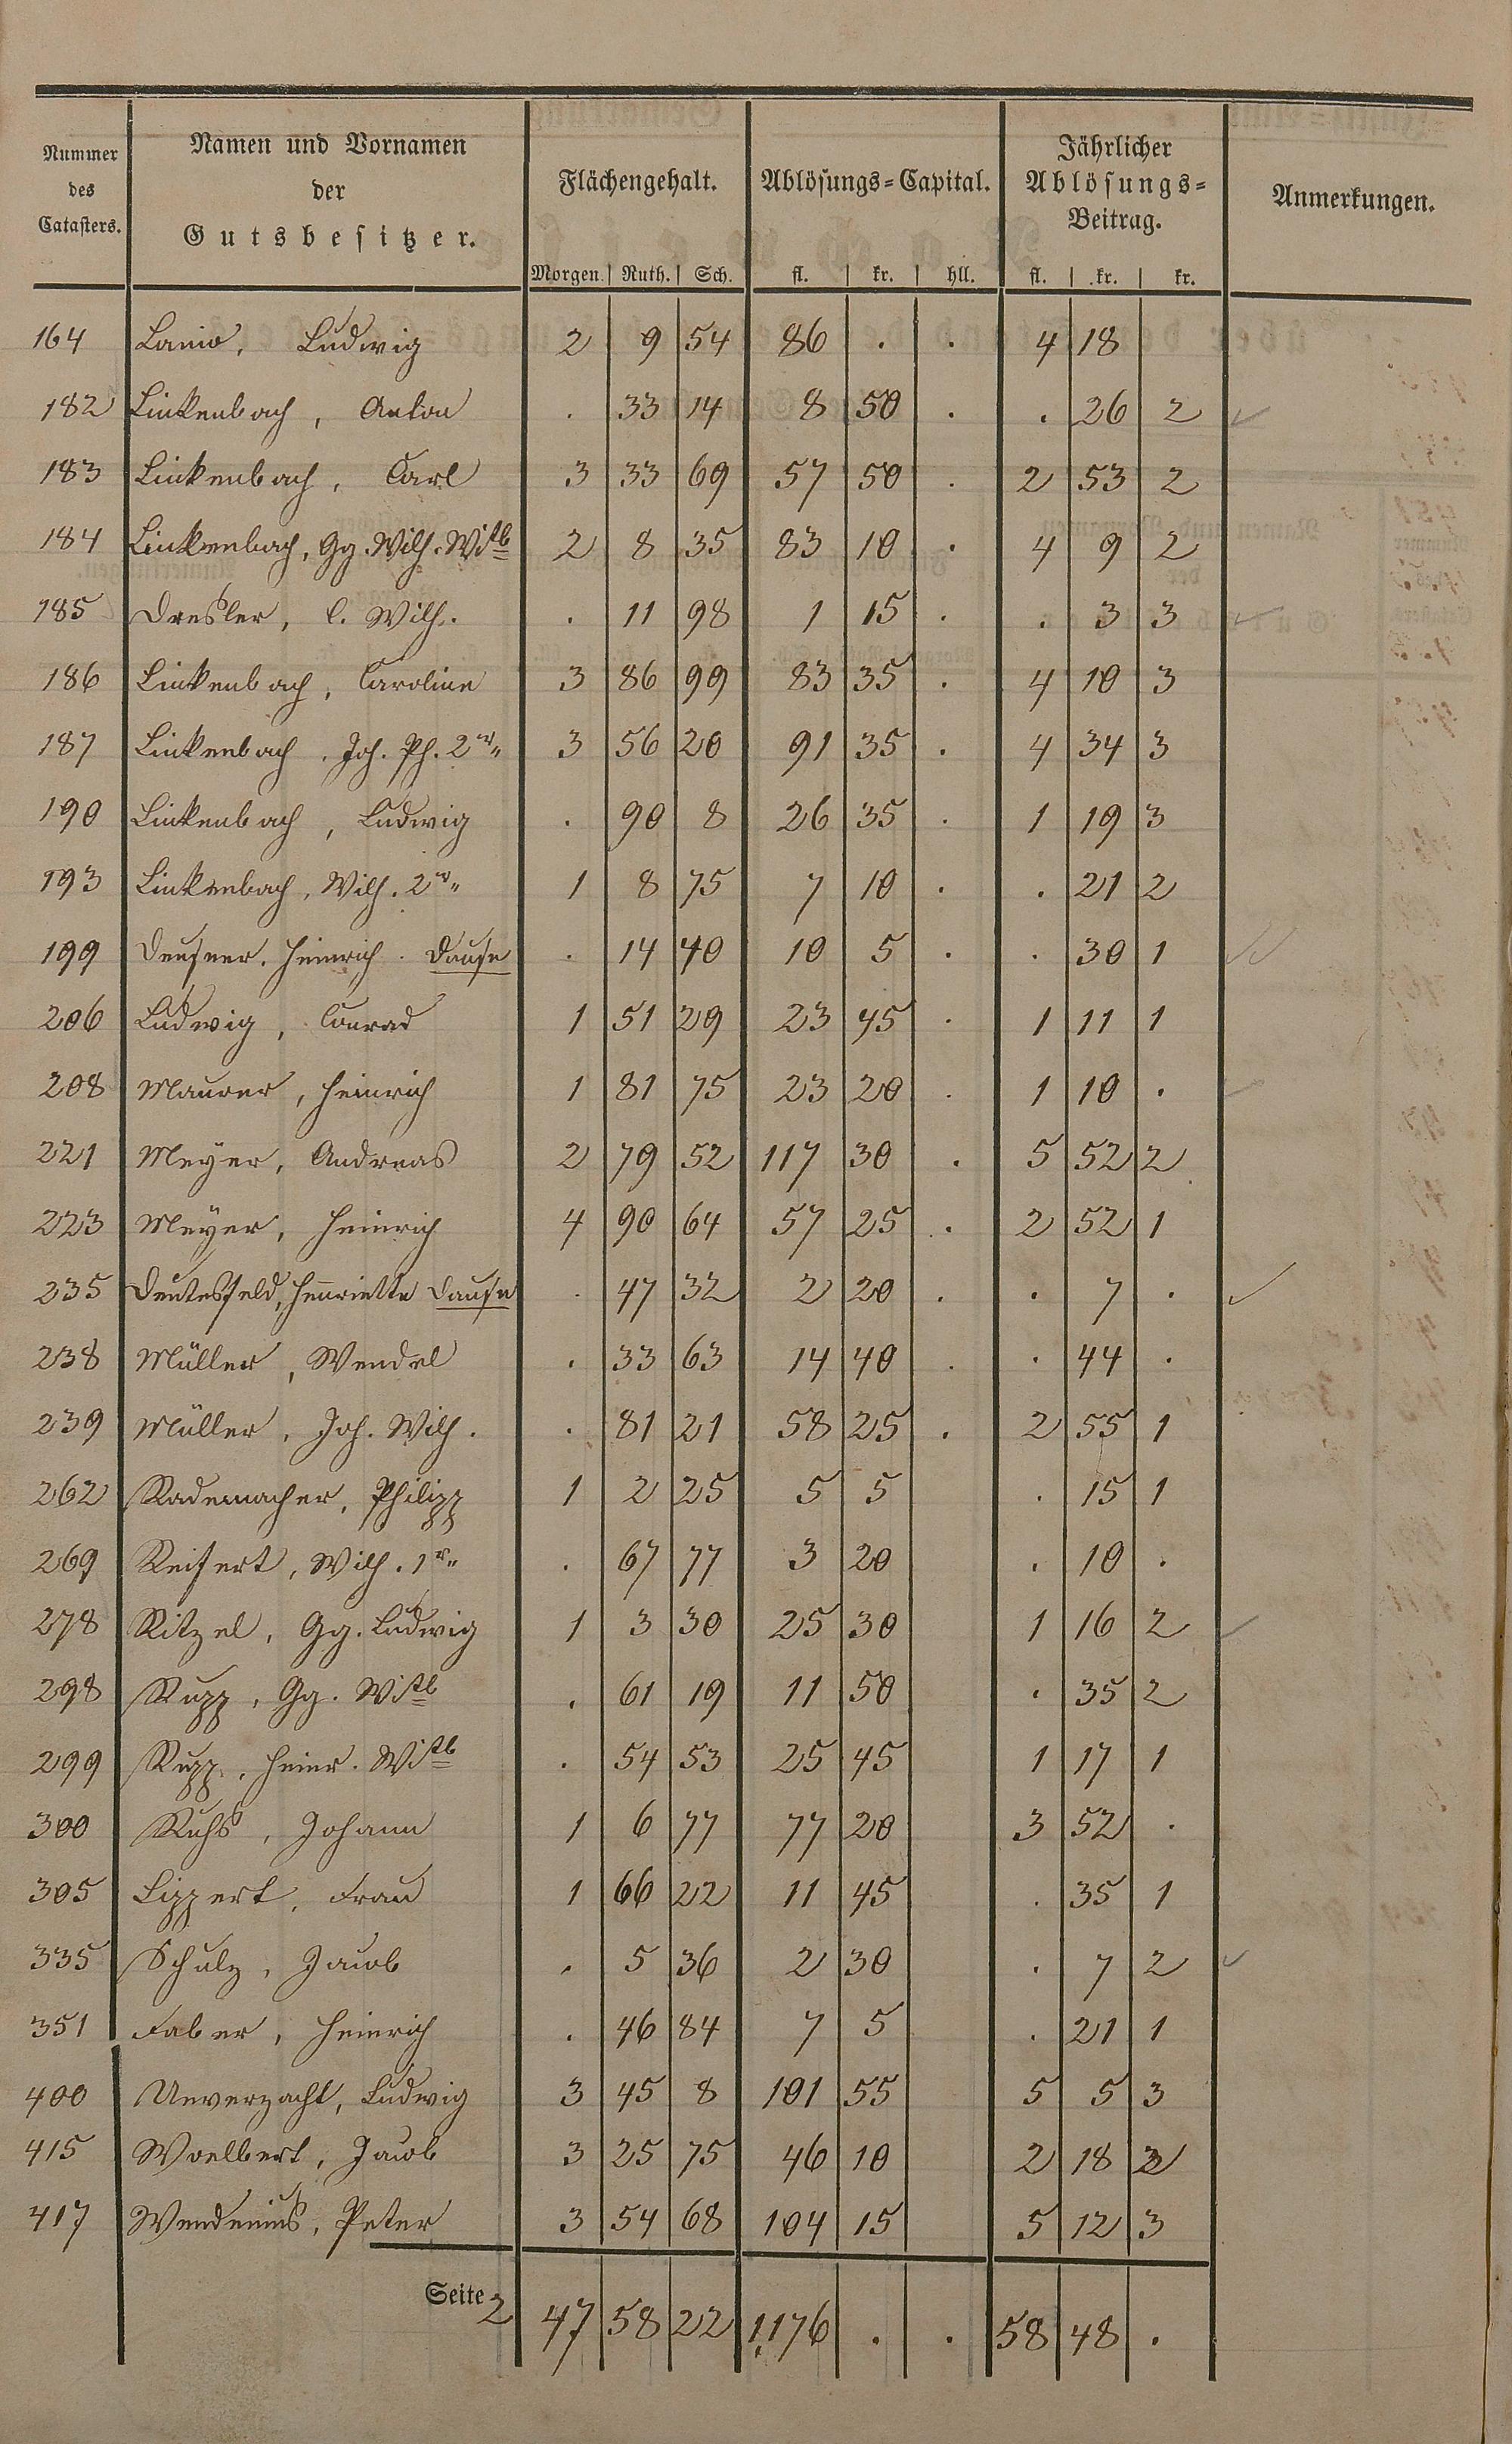 Nummer des Catasters. | Namen und Vornamen der Gutsbesitzer. | Flächengehalt. | Ablösungs=Capital. | Jährlicher Ablösungs=Beitrag. | Anmerkungen.
Morgen. | Ruth. | Sch. | fl. | kr. | hll. | fl. | kr. | kr.
164 Lanio, Ludwig 2 9 54 86 . . 4 18
182 Linkenbach, Anton . 33 14 8 50 . . 26 2
183 Linkenbach, Carl 3 33 69 57 50 . 2 53 2
184 Linkenbach, Gg. Wilh. Wttb 2 8 35 83 10 . 4 9 2
185 Dresler, C. Wilh. . 11 98 1 15 . . 3 3
186 Linkenbach, Caroline 3 86 99 83 35 . 4 10 3
187 Linkenbach, Joh. Ph. 2r 3 56 20 91 35 . 4 34 3
190 Linkenbach, Ludwig . 90 8 26 35 . 1 19 3
193 Linkenbach, Wilh. 2r 1 8 75 7 10 . . 21 2
199 Deusner. Heinrich. Dause . 14 40 10 5 . . 30 1
206 Ludwig, Conrad 1 51 29 23 45 . 1 11 1
208 Maurer, Heinrich 1 81 75 23 20 . 1 10 .
221 Meyer, Andreas 2 79 52 117 30 . 5 52 2
223 Meyer, Heinrich 4 90 64 57 25 . 2 52 1
235 Deutesfeld, Henriette Dause . 47 32 2 20 . . 7 .
238 Müller, Wendel . 33 63 14 40 . . 44 .
239 Müller, Joh. Wilh. . 81 21 58 25 . 2 55 1
262 Rademacher, Philipp 1 2 25 5 5 . 15 1
269 Reifert, Wilh. 1r . 67 77 3 20 . 10 .
278 Ritzel, Gg. Ludwig 1 3 30 25 30 1 16 2
298 Rupp, Gg. Wttb . 61 19 11 50 . 35 2
299 Rupp, Heinr. Wttb . 54 53 25 45 1 17 1
300 Ruhs, Johann 1 6 77 77 20 3 52 .
305 Lippert, Frau 1 66 22 11 45 . 35 1
335 Schulz, Jacob . 5 36 2 30 . 7 2
351 Faber, Heinrich . 46 84 7 5 . 21 1
400 Unverzacht, Ludwig 3 45 8 101 55 5 5 3
415 Woelbert, Jacob 3 25 75 46 10 2 18 2
417 Wendenius, Peter 3 54 68 104 15 5 12 3
Seite 2 47 58 22 1,176 . . 58 48 .